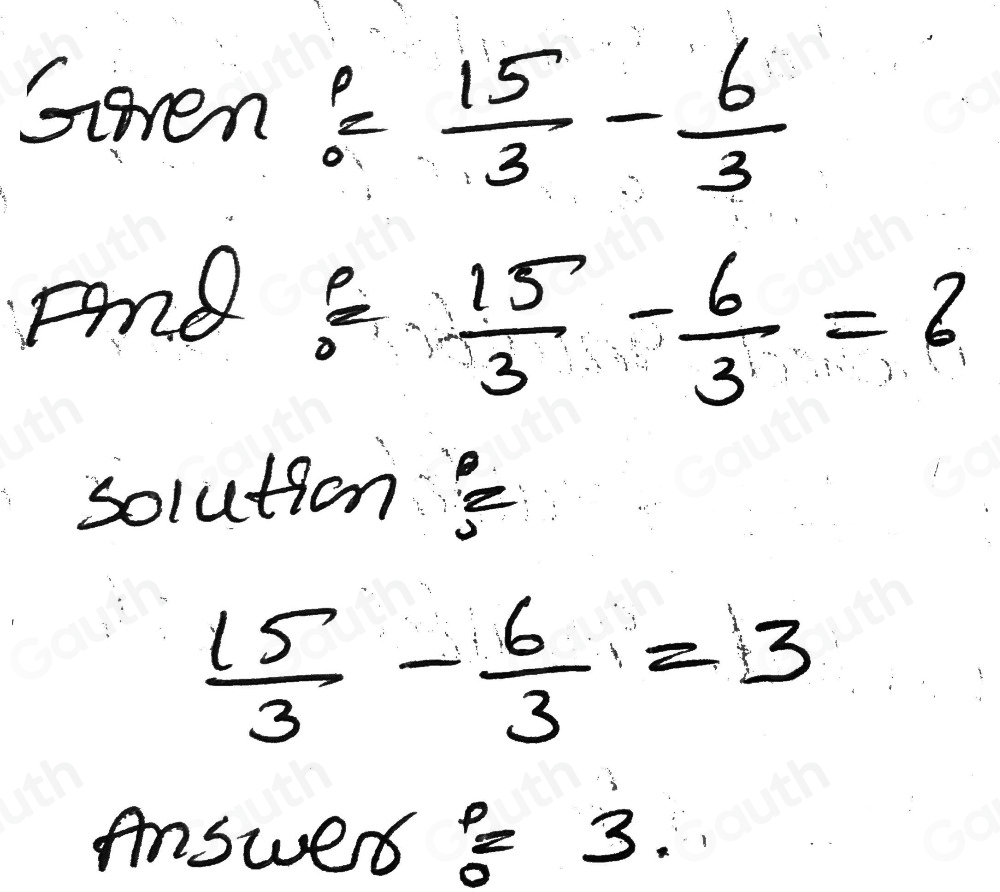 Given := 15/3 - 6/3
Find := 15/3 - 6/3 = ?
Solution :=
15/3 - 6/3 = 3
Answer := 3.